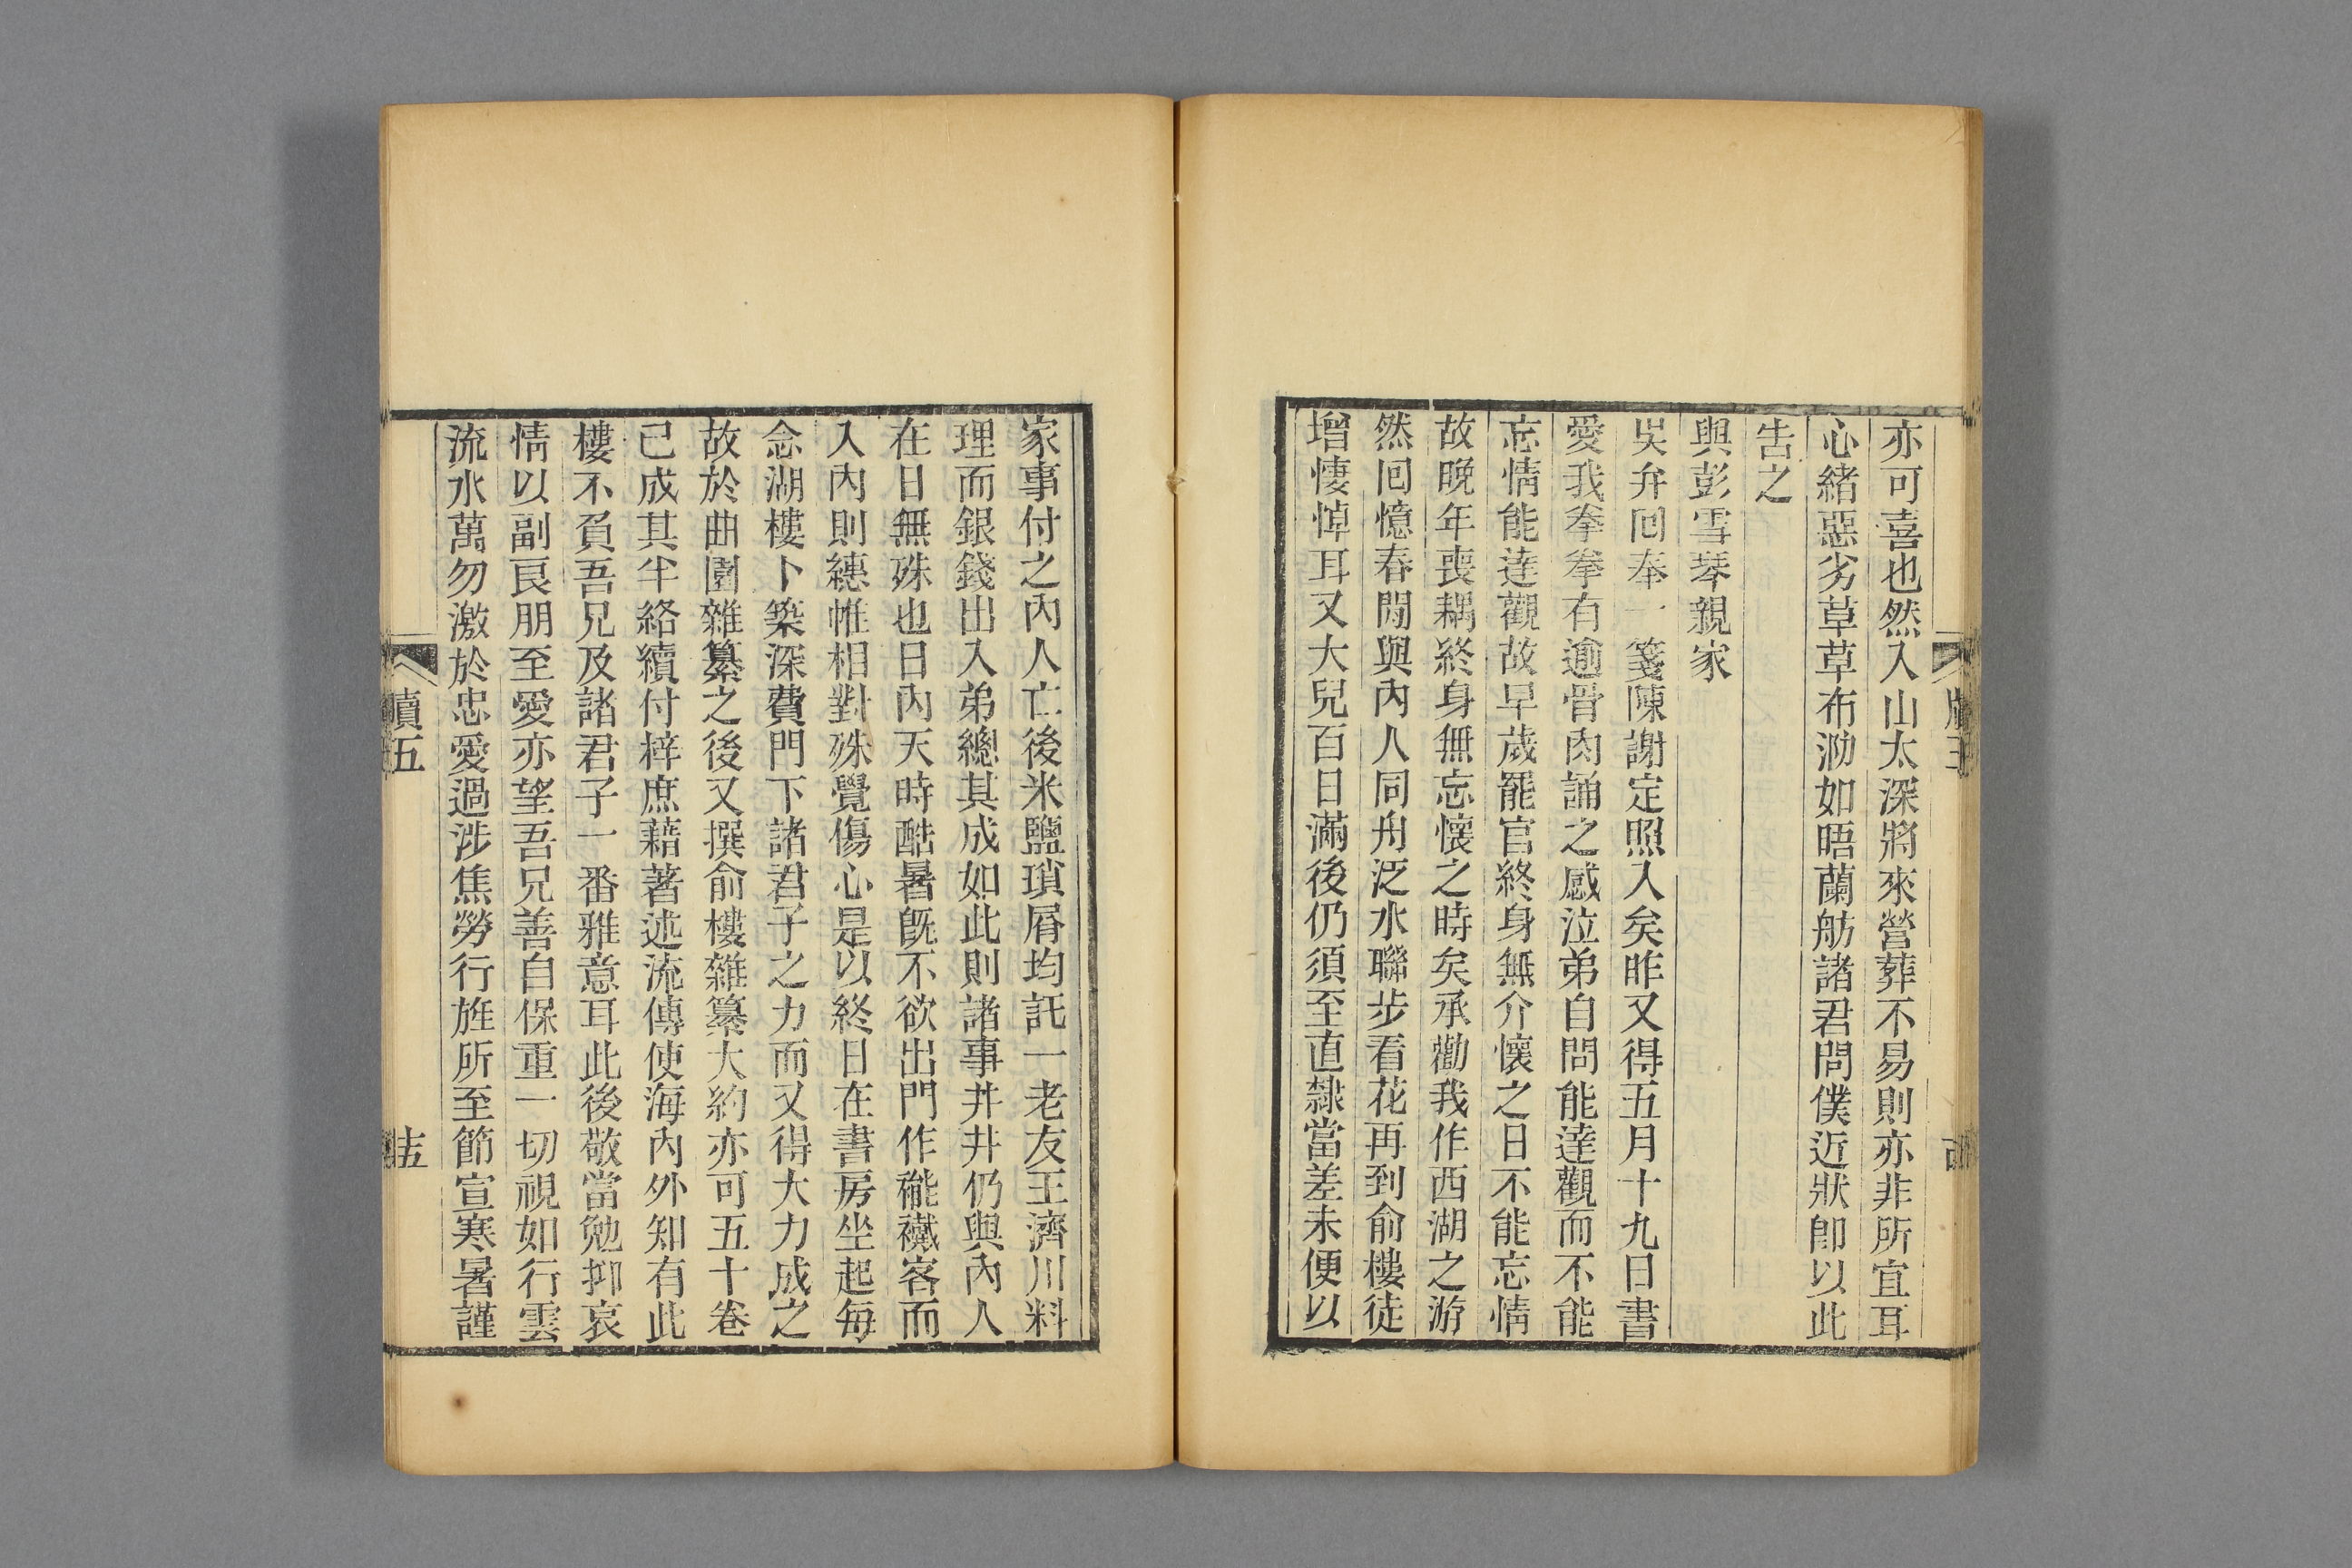 亦可喜也然入山太深將來營葬不易則亦非所宜耳
心緒惡劣草草布泐如晤蘭舫諸君問僕近狀卽以此
告之
與彭雪琴親家
吳弁回奉一箋陳謝定照入矣昨又得五月十九日書
愛我拳拳有逾骨肉誦之感泣弟自問能達觀而不能
忘情能達觀故早歲罷官終身無介懷之日不能忘情
故晚年喪耦終身無忘懷之時矣承勸我作西湖之游
然回憶春閒與內人同舟泛水聯步看花再到俞樓徒
增悽悼耳又大兒百日滿後仍須至直隸當差未便以
家事付之內人亡後米鹽瑣屑均託一老友王濟川料
理而銀錢出入弟總其成如此則諸事井井仍與內人
在日無殊也日內天時酷暑旣不欲出門作褦襶客而
入內則繐帷相對殊覺傷心是以終日在書房坐起每
念湖樓卜築深費門下諸君子之力而又得大力成之
故於曲園雜纂之後又撰俞樓雜纂大約亦可五十卷
已成其半絡續付梓庶藉著述流傳使海內外知有此
樓不負吾兄及諸君子一番雅意耳此後敬當勉抑哀
情以副良朋至愛亦望吾兄善自保重一切視如行雲
流水萬勿激於忠愛過涉焦勞行旌所至節宣寒暑謹
牘五